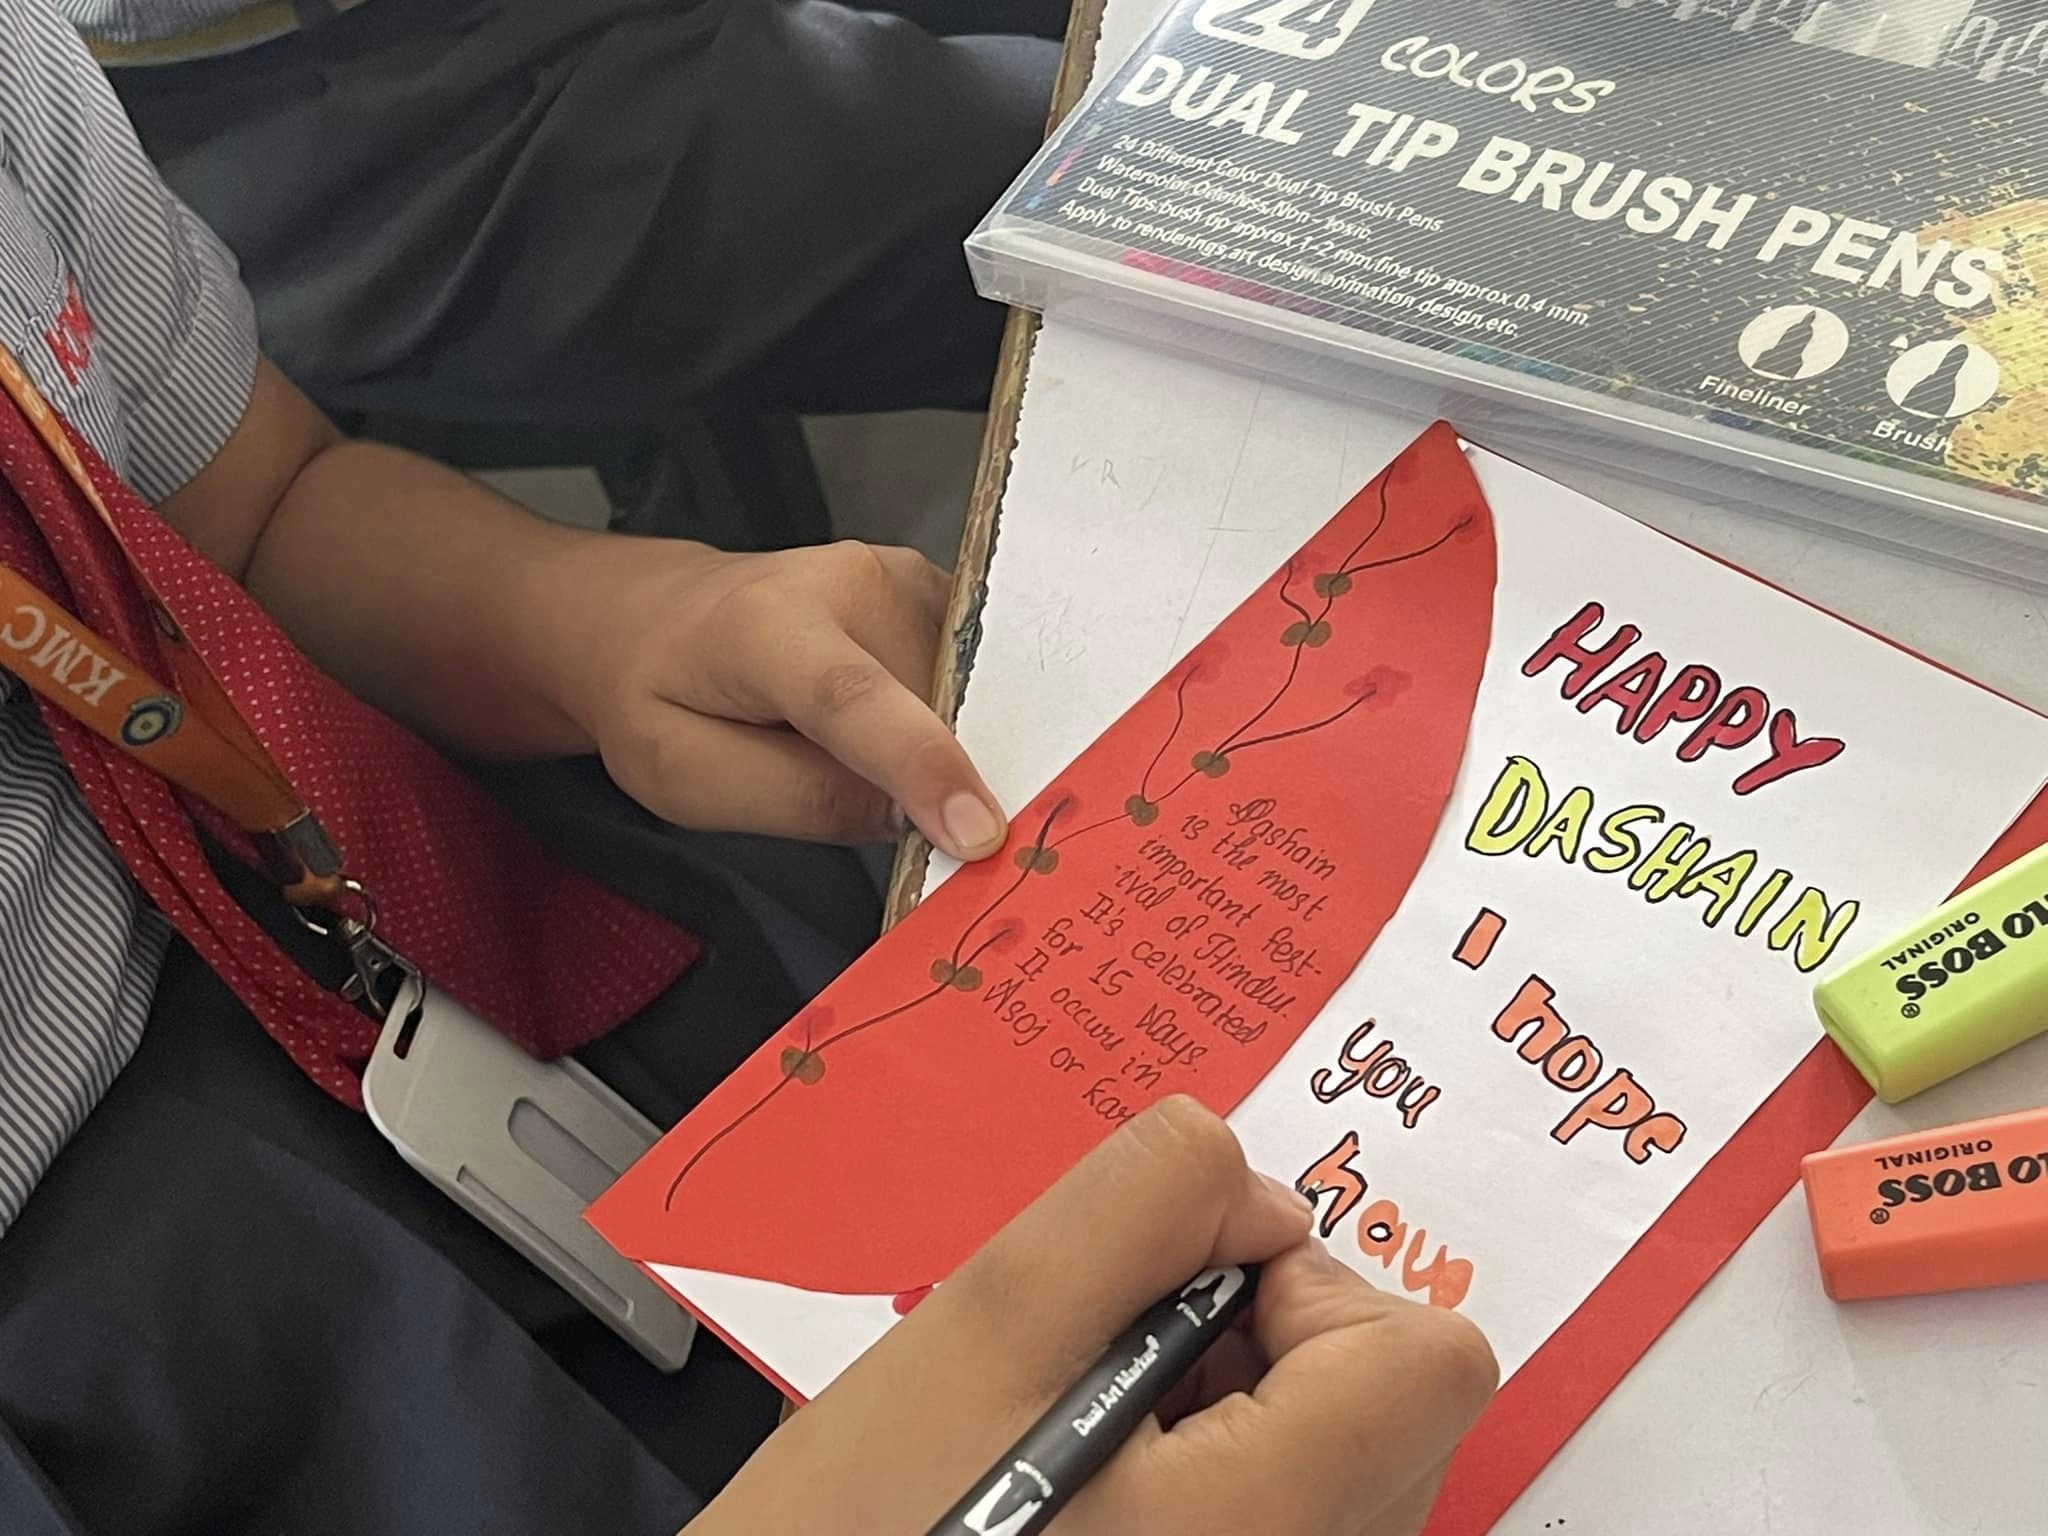 24
COLORS
DUAL TIP BRUSH PENS
24 Different Color Dual Tip Brush Pens
Watercolor,Odorless,Non-toxic.
Dual Tips:bush tip approx.1-2 mm.fine tip approx.0.4 mm.
Apply to renderings,art design,animation design,etc.
Fineliner
Brush
KMC
HAPPY
DASHAIN
I hope
you
have
Dashain
is the most
important fest-
ival of Hindu.
It's celebrated
for 15 Days.
It occurs in
Asoj or
BOSS
ORIGINAL
BOSS
ORIGINAL
Dual Art Marker